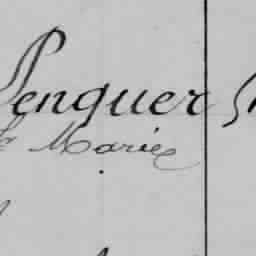 Penquer
Marie